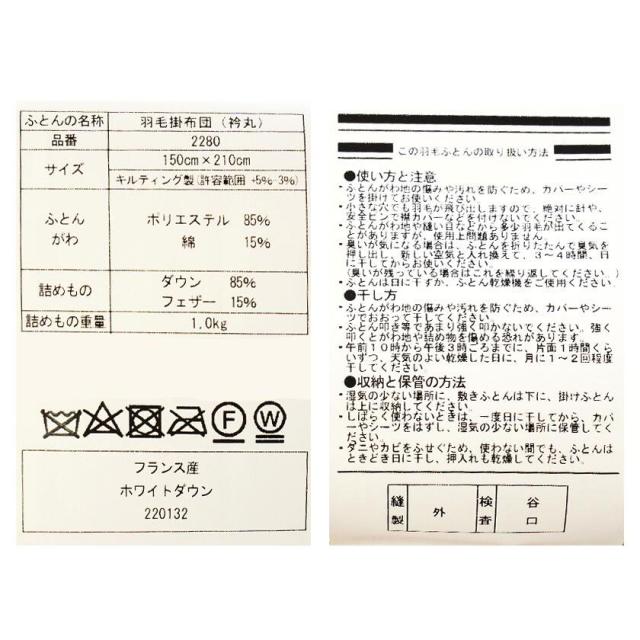 ふとんの名称 羽毛掛布団（衿丸）
品番 2280
サイズ 150cm×210cm
キルティング製(許容範囲 +5%-3%)
ふとんがわ ポリエステル 85%
綿 15%
詰めもの ダウン 85%
フェザー 15%
詰めもの重量 1.0kg
F W
フランス産
ホワイトダウン
220132
この羽毛ふとんの取り扱い方法
●使い方と注意
・ふとんがわ地の傷みや汚れを防ぐため、カバーやシー
ツを掛けてお使いください。
・小さな穴でも羽毛が飛び出しますので、絶対に針や、
安全ピンで襟カバーなどを付けないでください。
・ふとんがわ地や縫い目などから多少羽毛が出てくるこ
とがありますが、使用上問題ありません。
・臭いが気になる場合は、ふとんを折りたたんで臭気を
押し出し、新しい空気と入れ換えて、3～4時間、日
に干してからお使いください。
(臭いが残っている場合はこれを繰り返してください。)
・ふとんは日に干すか、ふとん乾燥機をご使用ください。
●干し方
・ふとんがわ地の傷みや汚れを防ぐため、カバーやシー
ツでおおって干してください。
・ふとん叩き等であまり強く叩かないでください。強く
叩くとがわ地や詰め物を傷める恐れがあります。
・午前10時から午後3時ごろまでに、片面1時間くら
いずつ、天気のよい乾燥した日に、月に1～2回程度
干してください。
●収納と保管の方法
・湿気の少ない場所に、敷きふとんは下に、掛けふとん
は上に収納してください。
・しばらく使わないときは、一度日に干してから、カバ
ーやシーツをはずし、湿気の少ない場所に保管してく
ださい。
・ダニやカビをふせぐため、使わない間でも、ふとんは
ときどき日に干し、押入れも乾燥してください。
縫製 外 検査 谷口